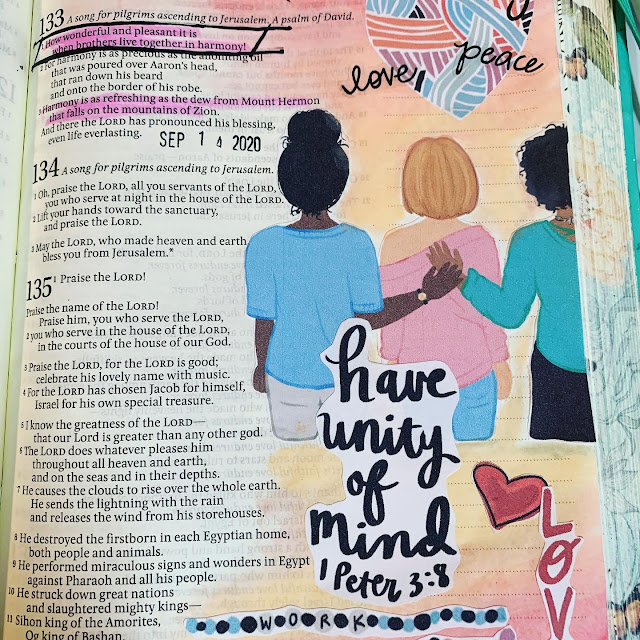 133 A song for pilgrims ascending to Jerusalem. A psalm of David.
1 How wonderful and pleasant it is
when brothers live together in harmony!
2 For harmony is as precious as the anointing oil
that was poured over Aaron's head,
that ran down his beard
and onto the border of his robe.
3 Harmony is as refreshing as the dew from Mount Hermon
that falls on the mountains of Zion.
And there the LORD has pronounced his blessing,
even life everlasting.
SEP 14 2020
134 A song for pilgrims ascending to Jerusalem.
1 Oh, praise the LORD, all you servants of the LORD,
you who serve at night in the house of the LORD.
2 Lift your hands toward the sanctuary,
and praise the LORD.
3 May the LORD, who made heaven and earth,
bless you from Jerusalem.*
135 1 Praise the LORD!
Praise the name of the LORD!
Praise him, you who serve the LORD,
2 you who serve in the house of the LORD,
in the courts of the house of our God.
3 Praise the LORD, for the LORD is good;
celebrate his lovely name with music.
4 For the LORD has chosen Jacob for himself,
Israel for his own special treasure.
5 I know the greatness of the LORD—
that our Lord is greater than any other god.
6 The LORD does whatever pleases him
throughout all heaven and earth,
and on the seas and in their depths.
7 He causes the clouds to rise over the whole earth.
He sends the lightning with the rain
and releases the wind from his storehouses.
8 He destroyed the firstborn in each Egyptian home,
both people and animals.
9 He performed miraculous signs and wonders in Egypt
against Pharaoh and all his people.
10 He struck down great nations
and slaughtered mighty kings—
11 Sihon king of the Amorites,
Og king of Bashan,
love
peace
have
unity
of
mind
1 Peter 3:8
LOV
WORK